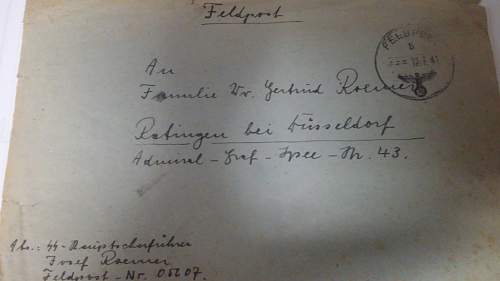 Feldpost
FELDPOST
b
12.1.41
An
Familie Wv. Gertrud Roemer
Ratingen bei Düsseldorf
Admiral-Graf-Spee-Str. 43.
Abs.: SS-Hauptscharführer
Josef Roemer
Feldpost-Nr. 05207.